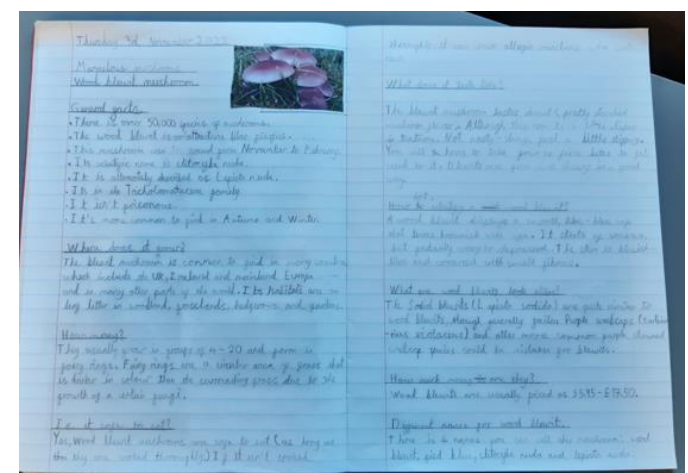 Thursday 3rd November 2022
Marvelous mushrooms
Wood blewit mushroom
General facts
• There is over 50,000 species of mushrooms.
• The wood blewit is an attractive lilac fungus.
• This mushroom can be found from November to February.
• Its scientific name is clitocybe nuda.
• It is alternately described as Lepista nuda.
• It's in the Tricholomataceae family
• It isn't poisonous.
• It's more common to find in Autumn and Winter.
Where does it grow?
The blewit mushroom is common to find in many
which include the UK, Ireland and mainland Europe
and in many other parts of the world. Its habitats are in
leaf litter in woodland, grasslands, hedgerows and gardens.
How many?
They usually grow in groups of 4-20 and form in
fairy rings. Fairy rings are a circular area of grass that
is darker in colour than the surrounding grass due to the
growth of a certain fungi.
Is it safe to eat?
Yes, wood blewit mushrooms are safe to eat (as long as
they are cooked thoroughly.) If it isn't cooked
thoroughly it can cause allergic reactions
What does it taste like?
The blewit mushroom tastes
Although
You will have to take
used to it. Blewits are
way.
How to identify a wood blewit?
A wood blewit displays a smooth, lilac-blue cap
that turns brownish with age. It starts of convex,
but gradually
lilac and covered with small fibres.
What do wood blewits look like?
The field blewits (Lepista saeva) are quite similar to
wood blewits, though generally paler. Purple webcaps
and other more common purple
webcap species could be mistaken for blewits.
How much money are they?
Wood blewits are usually priced as £5.95 - £17.50.
Different names for wood blewits.
There is 4 names you can call the mushroom: wood
blewit, pied bleu, clitocybe nuda and lepista nuda.